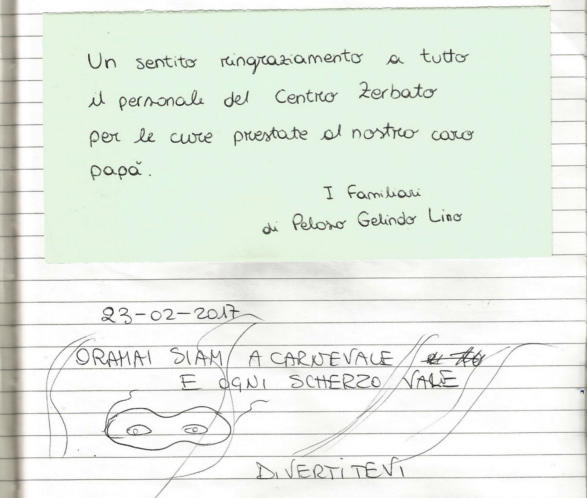 Un sentito ringraziamento a tutto
il personale del Centro Zerbato
per le cure prestate al nostro caro
papà.
I Familiari
di Peloso Gelindo Lino
23-02-2017
ORAMAI SIAM A CARNEVALE
E OGNI SCHERZO VALE
DIVERTITEVI